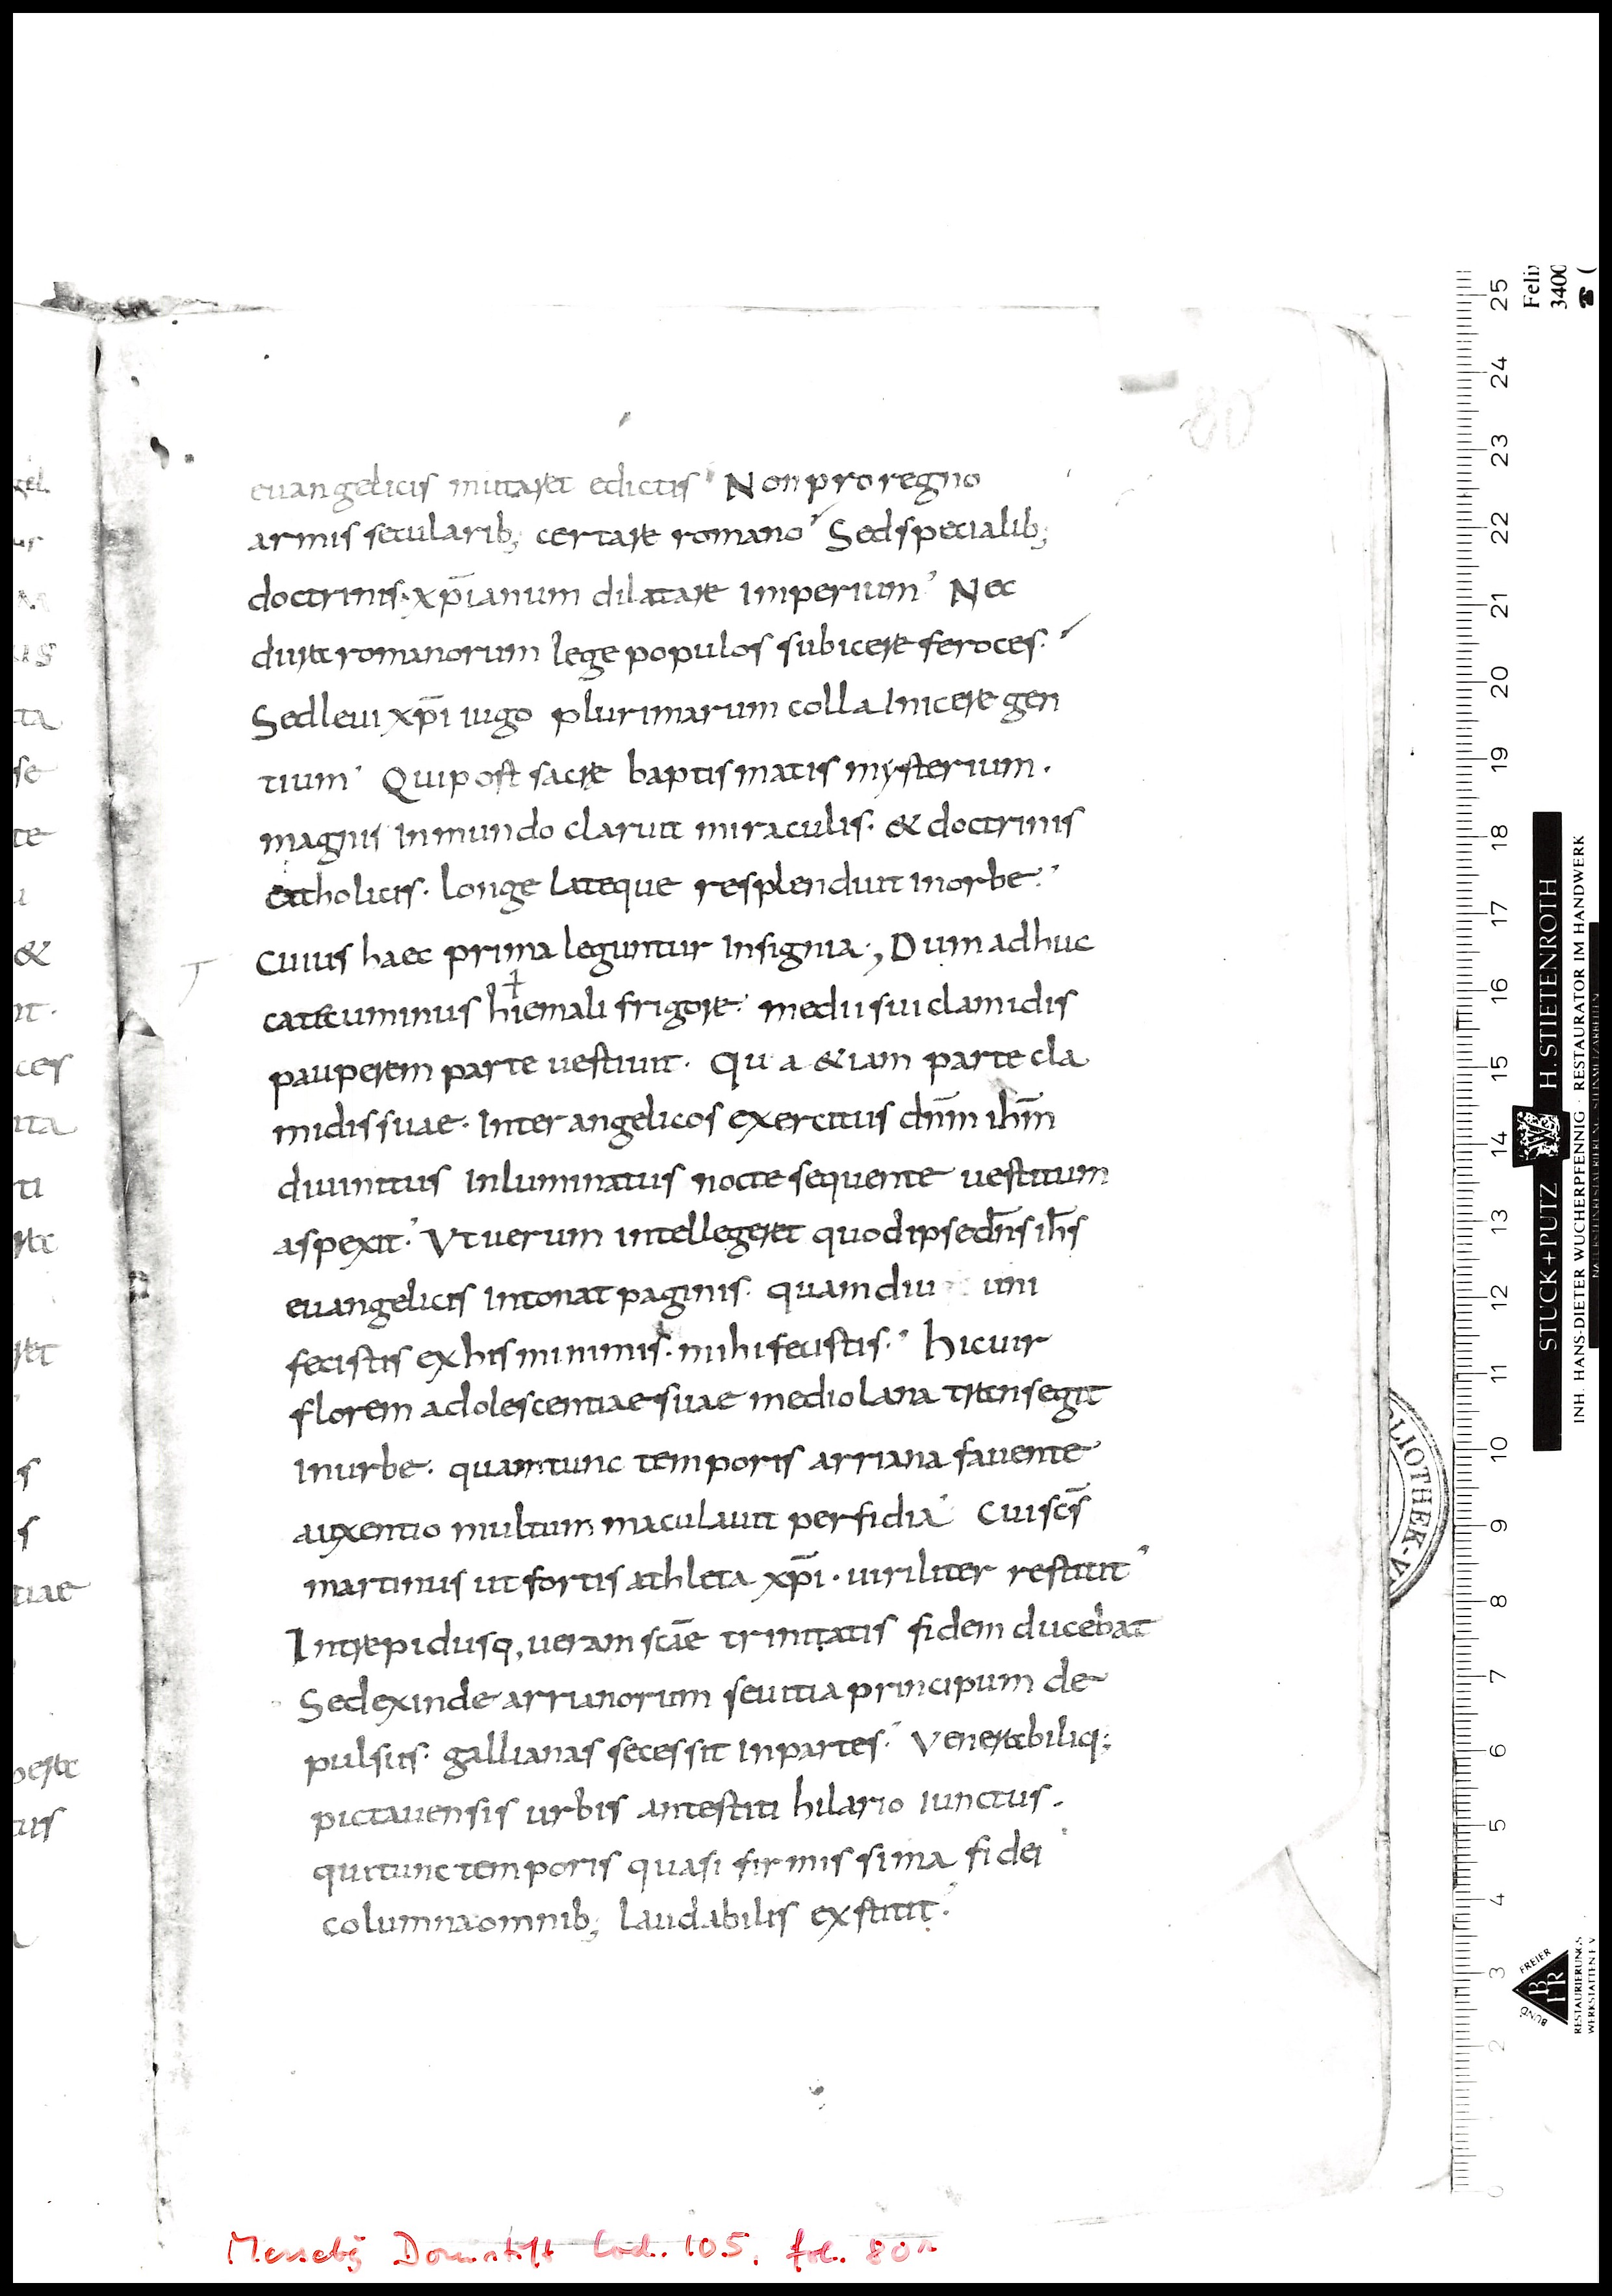 80
euangelicis mutaret edictis Non pro regno
armis secularib; certare romano Sed specialib;
doctrinis. xp̄ianum dilatare imperium Nec
dura romanorum lege populos subicere feroces.
Sed leui xp̄i iugo plurimarum colla inicere gen
tium Qui post sacre baptismatis mysterium.
magnis in mundo claruit miraculis. & doctrinis
catholicis. longe lateque resplenduit in orbe.
Cuius haec prima leguntur insignia; Dum adhuc
catecuminus hiemali frigore. medii sui clamidis
pauperem parte uestiuit. Qua &iam parte cla
midis suae. inter angelicos exercitus dn̄m ih̄m
diuinitus inluminatus nocte sequente uestitum
aspexit. Vt uerum intellegeret quod ipse dn̄s ih̄s
euangelicis intonat paginis. quamdiu uni
fecistis ex his minimis. mihi fecistis. Hic uir
florem adolescentiae suae mediolana transegit
in urbe. quam tunc temporis arriana fauente
auxentio multum maculauit perfidia Cui sc̄s
martinus ut fortis athleta xp̄i. uiriliter restitit
Intrepidusq, ueram sc̄ae trinitatis fidem ducebat
Sed exinde arrianorum seuitia principum de
pulsus. gallianas secessit in partes. Venerabiliq;
pictauensis urbis antestiti hilario iunctus.
qui tunc temporis quasi firmissima fidei
columna omnib; laudabilis exstitit.
Merseb͞g Domstift Cod. 105, fol. 80r
STUCK+PUTZ H. STIETENROTH
INH. HANS-DIETER WUCHERPFENNIG · RESTAURATOR IM HANDWERK
0 2 3 4 5 6 7 8 9 10 11 12 13 14 15 16 17 18 19 20 21 22 23 24 25
3400
BUND FREIER
BFR
RESTAURIERUNGS
WERKSTÄTTEN E.V
LIOTHEK